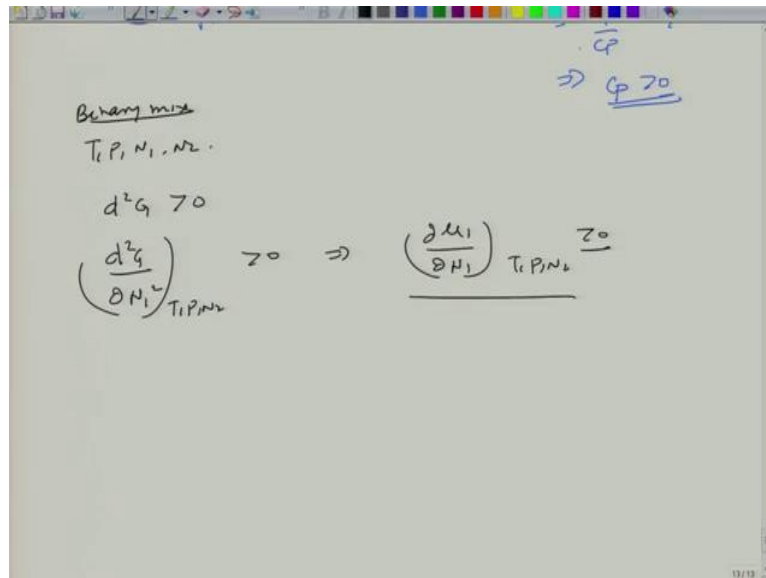 Cp
⇒ Cp >0
Binary mix
T, P, N1, N2.
d²G >0
(d²G/∂N1²)T,P,N2 >0 ⇒ (∂μ1/∂N1)T,P,N2 >0
13/13